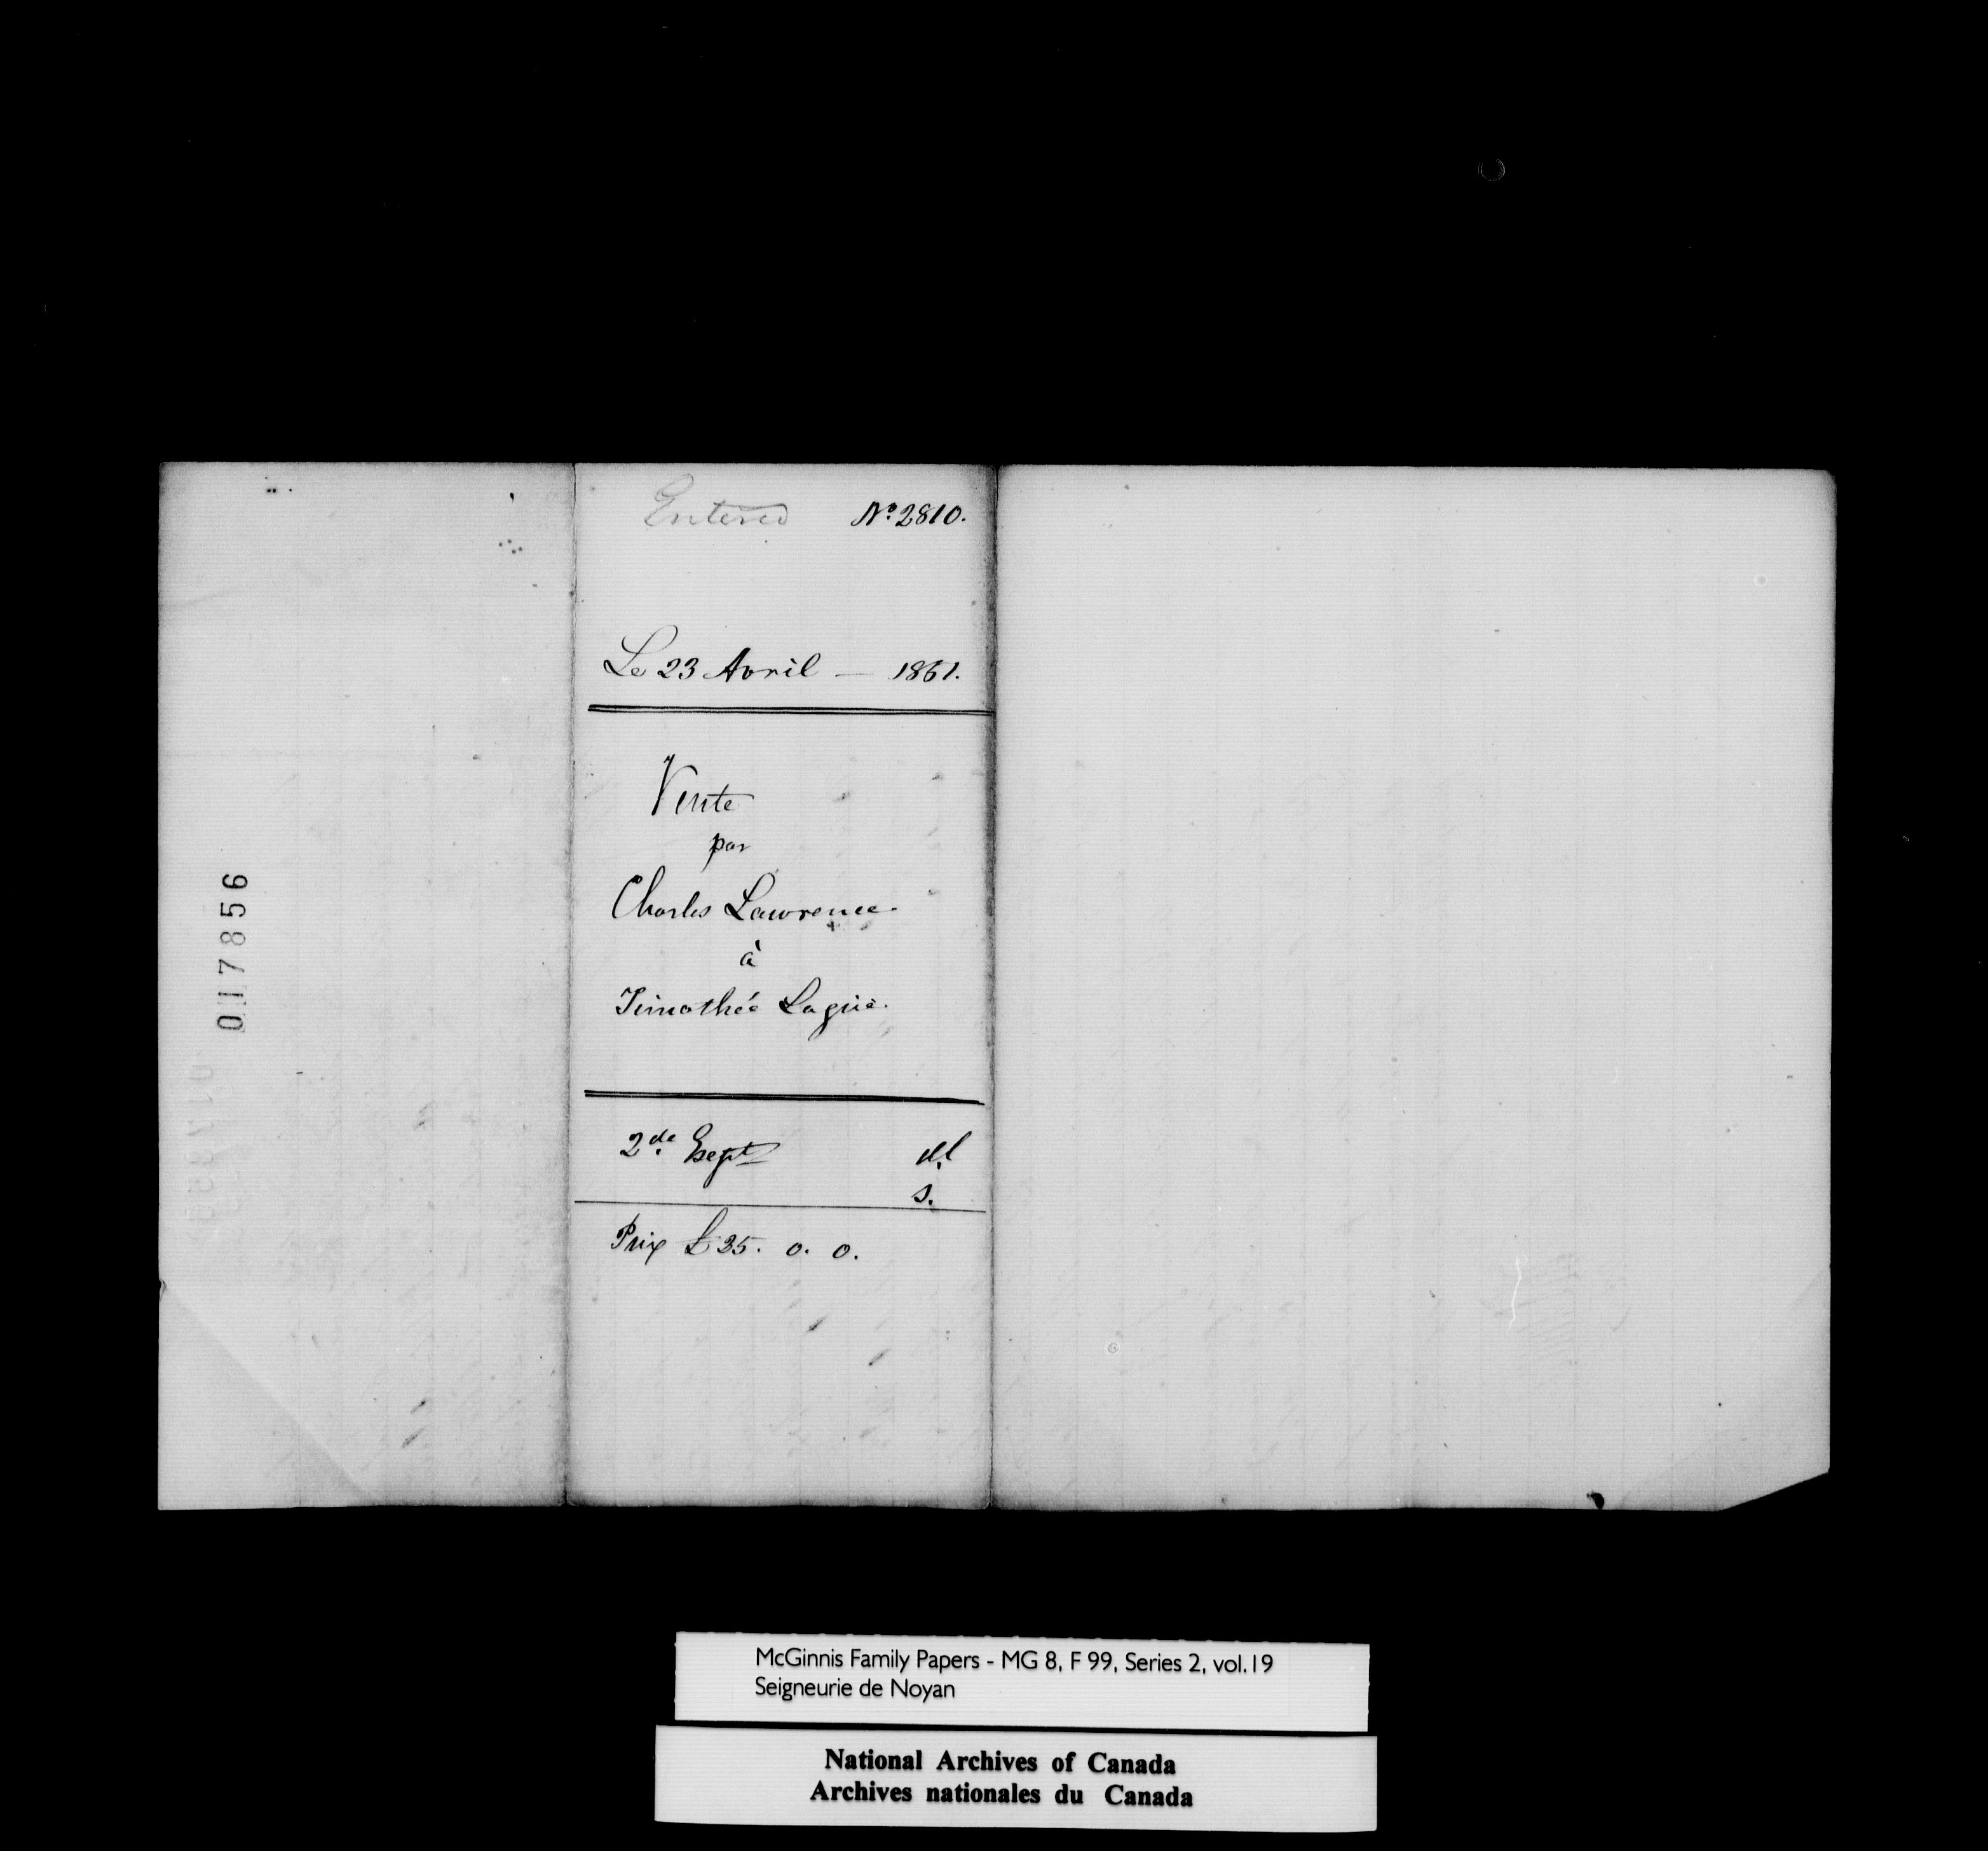 Entered Nº 2810.
Le 23 Avril — 1861.
Vente
par
Charles Lawrence.
à
Timothée Laguë.
2de Expt
s.
Prix £35. 0. 0.
017856
McGinnis Family Papers - MG 8, F 99, Series 2, vol.19
Seigneurie de Noyan
National Archives of Canada
Archives nationales du Canada